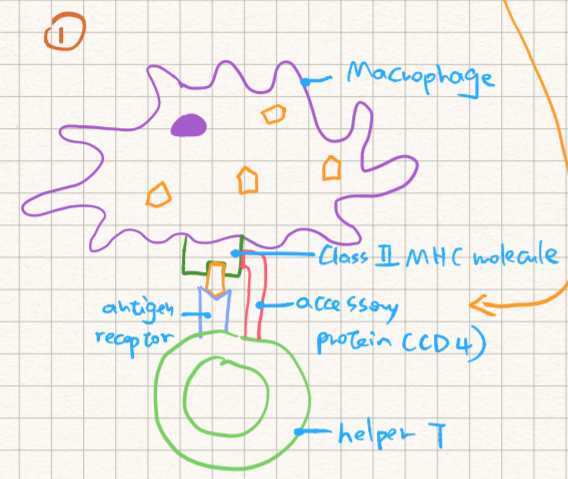 1
Macrophage
Class II MHC molecule
antigen
receptor
accessory
protein (CD4)
helper T